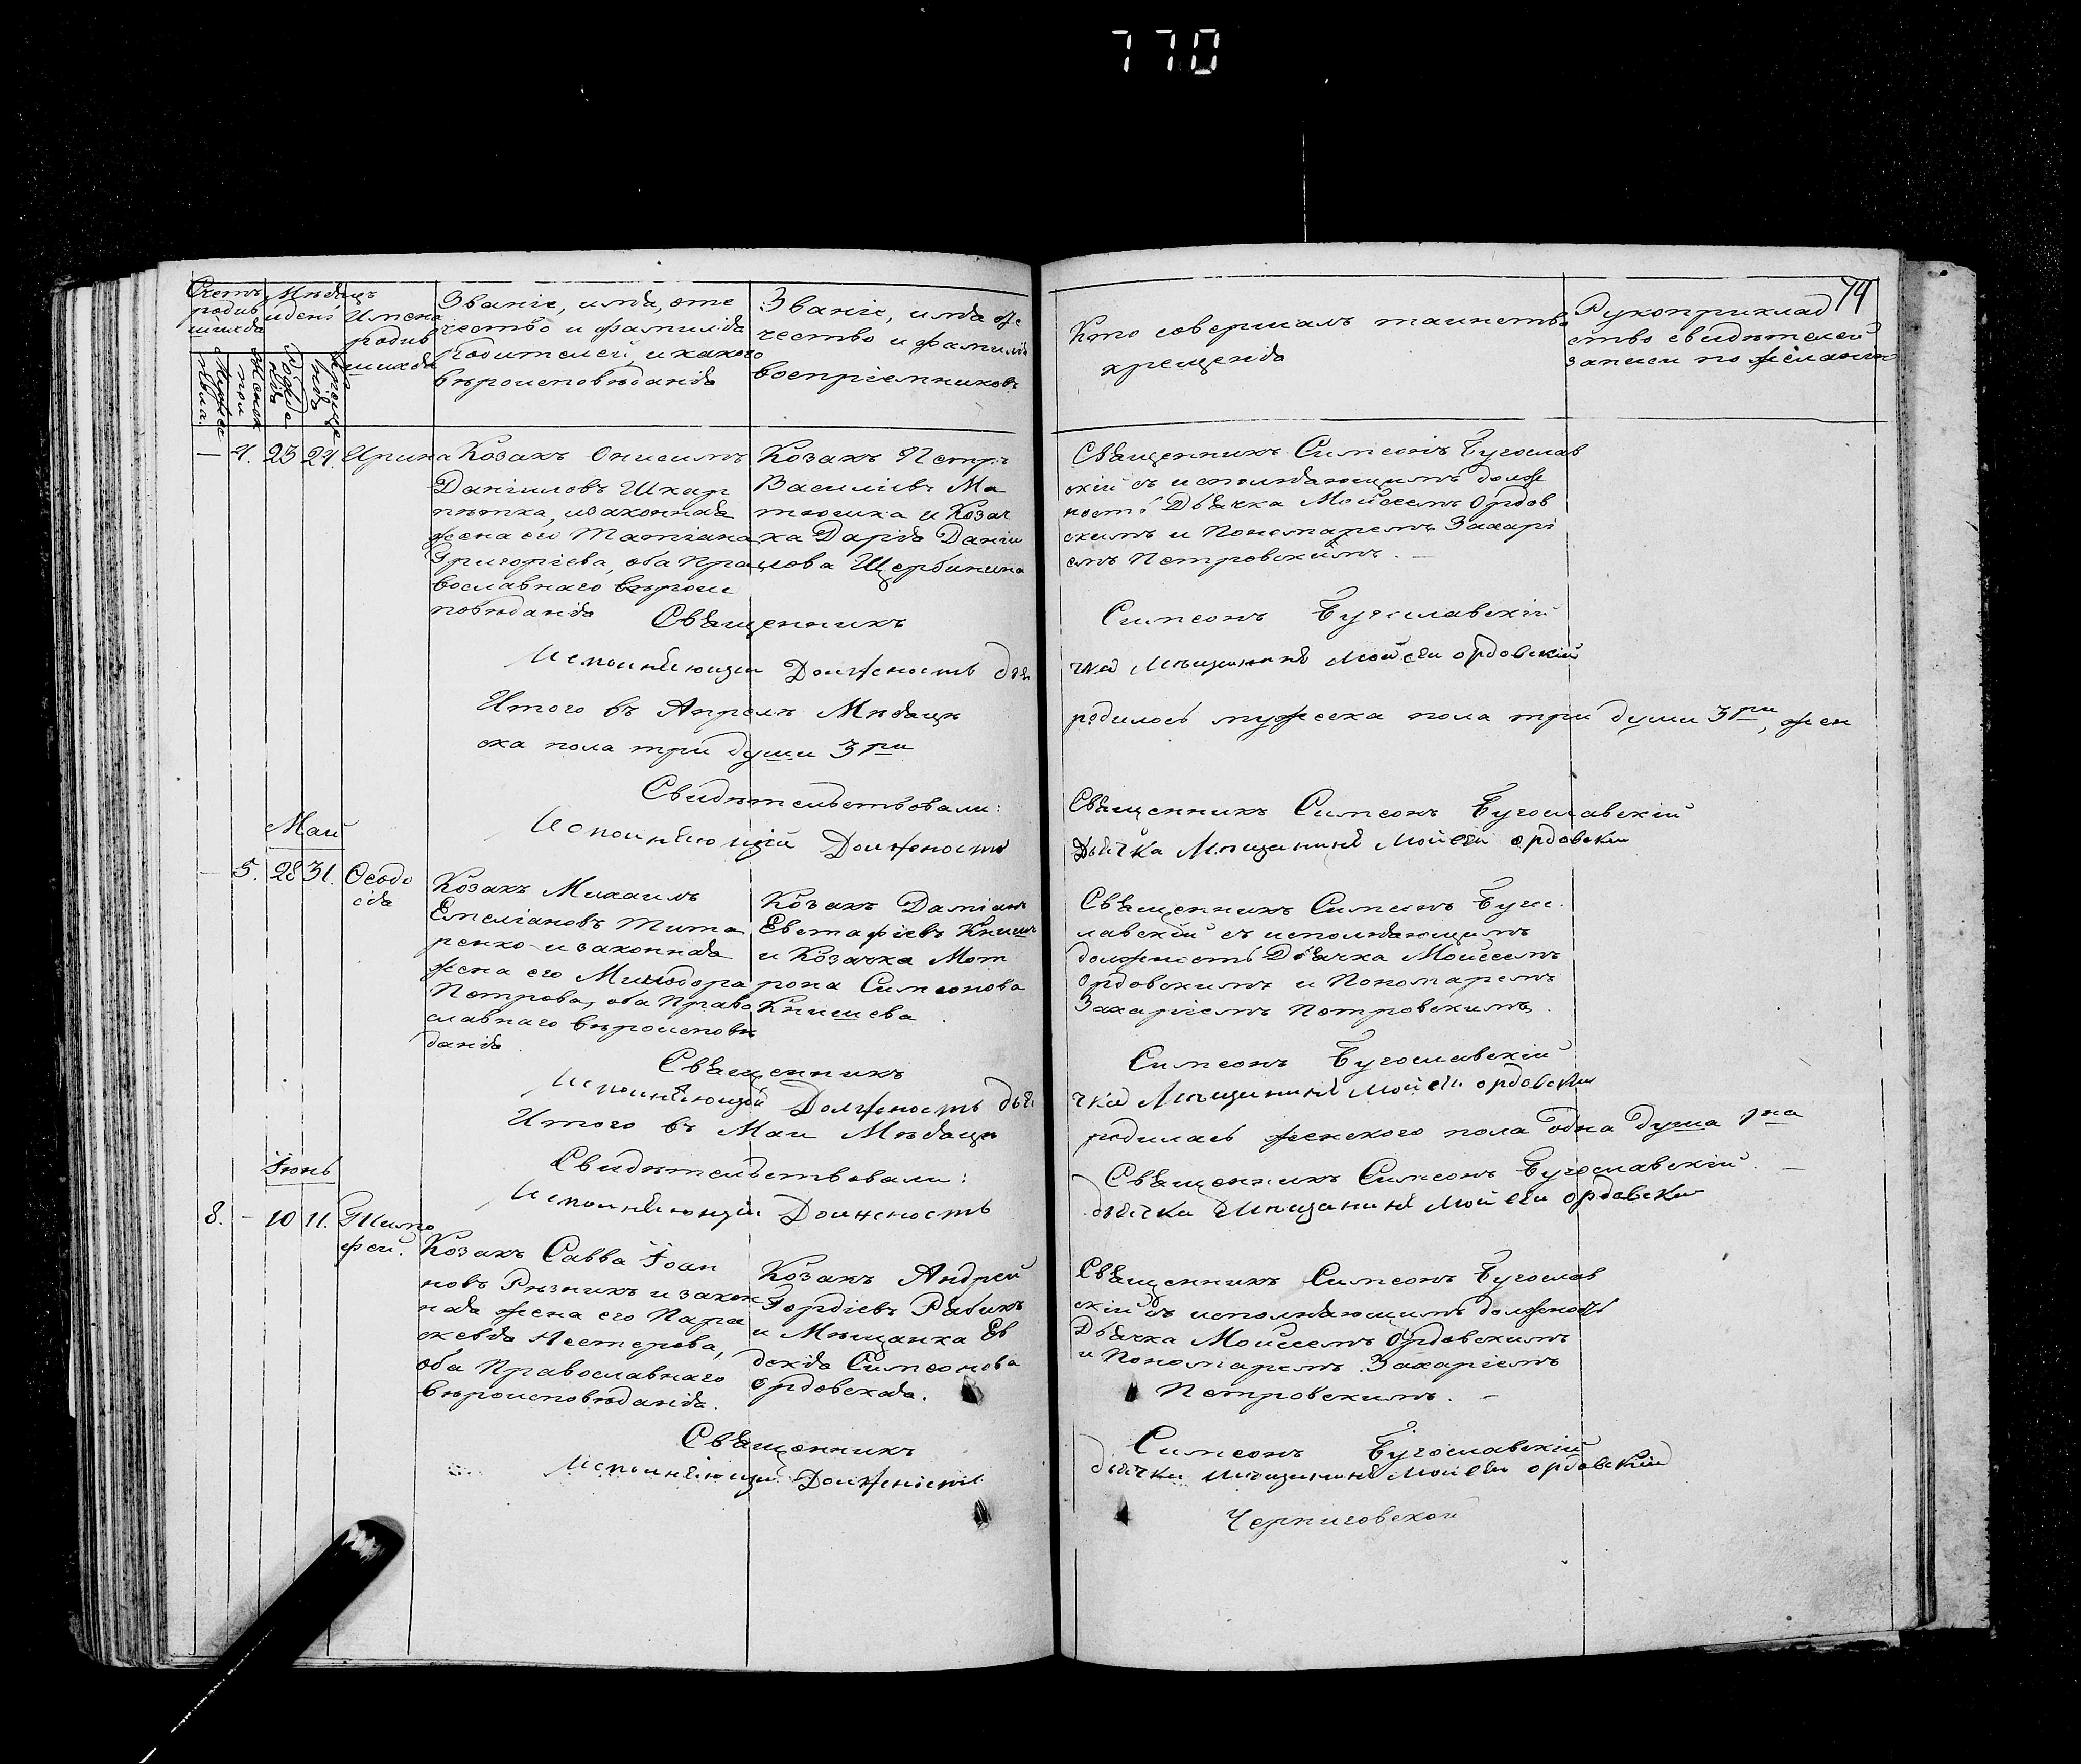 770
74
Счетъ родив шихся
Мѣсяцъ и день
Имена родив шихся
Мужес каго
Женск
рожде нія
креще нія
Званіе, имя, оте
чество и фамилія
Родителей, и какого
вѣроисповѣданія
Званіе, имя оте
чество и фамилія
воспріемниковъ
Кто совершалъ таинство
крещенія
Рукоприклад
ство свидѣтелей
записи по желанію
— 4. 23 24. Ирина
Козакъ Онисимъ
Даніиловъ Шкар
пѣтка, и законная
жена его Татіана
Григоріева, оба Пра
вославнаго вѣроис
повѣданія
Козакъ Петръ
Василіевъ Ма
тюшка и Козач
ка Дарія Даніи
лова Щербинина
Священникъ Симеонъ Бугослав
скій съ исполняющимъ долж
ность Дьячка Мойсеемъ Ордов
скимъ и Пономаремъ Захарі
емъ Петровскимъ. —
Священникъ Симеонъ Бугославскій
Исполняющій Должность дья
чка Мѣщанинъ Мойсей ордовскій
Итого въ Апрелѣ Мѣсяцѣ родилось мужеска пола три души 3ри, жен
ска пола три души 3ри
Свидѣтельствовали: Священникъ Симеонъ Бугославскій
Исполняющій Должность Дьячка Мѣщанинъ Мойсей ордовскій
Май
— 5. 28 31. Ѳеодо
сія
Козакъ Михаилъ
Емеліановъ Тита
ренко и законная
жена его Милодора
Петрова, оба Право
славнаго вѣроисповѣ
данія
Козакъ Даміанъ
Евстафіевъ Книшъ
и Козачка Мот
рона Симеонова
Книшева
Священникъ Симеонъ Буго
славскій съ исполняющимъ
должность Дьячка Мойсеемъ
Ордовскимъ и Пономаремъ
Захаріемъ Петровскимъ.
Священникъ Симеонъ Бугославскій
Исполняющій Должность дья
чка Мѣщанинъ Мойсей ордовскій
Итого въ Маи Мѣсяцѣ родилась женского пола одна душа 1на
Свидѣтельствовали: Священникъ Симеонъ Бугославскій. —
Исполняющій Должность дьячка Мѣщанинъ Мойсей ордовскій
Іюнь
8. — 10 11. Тимо
фей.
Козакъ Савва Іоан
новъ Рѣзникъ и закон
ная жена его Пара
скевія Нестерова,
оба Православнаго
вѣроисповѣданія.
Козакъ Андрей
Гордіевъ Рябикъ
и Мѣщанка Ев
докія Симеонова
Ордовская.
Священникъ Симеонъ Бугослав
скій съ исполняющимъ должность
Дьячка Мойсеемъ Ордовскимъ
и Пономаремъ Захаріемъ
Петровскимъ. —
Священникъ Симеонъ Бугославскій
Исполняющій Должность
дьячка Мѣщанинъ Мойсей ордовскій
Черниговской